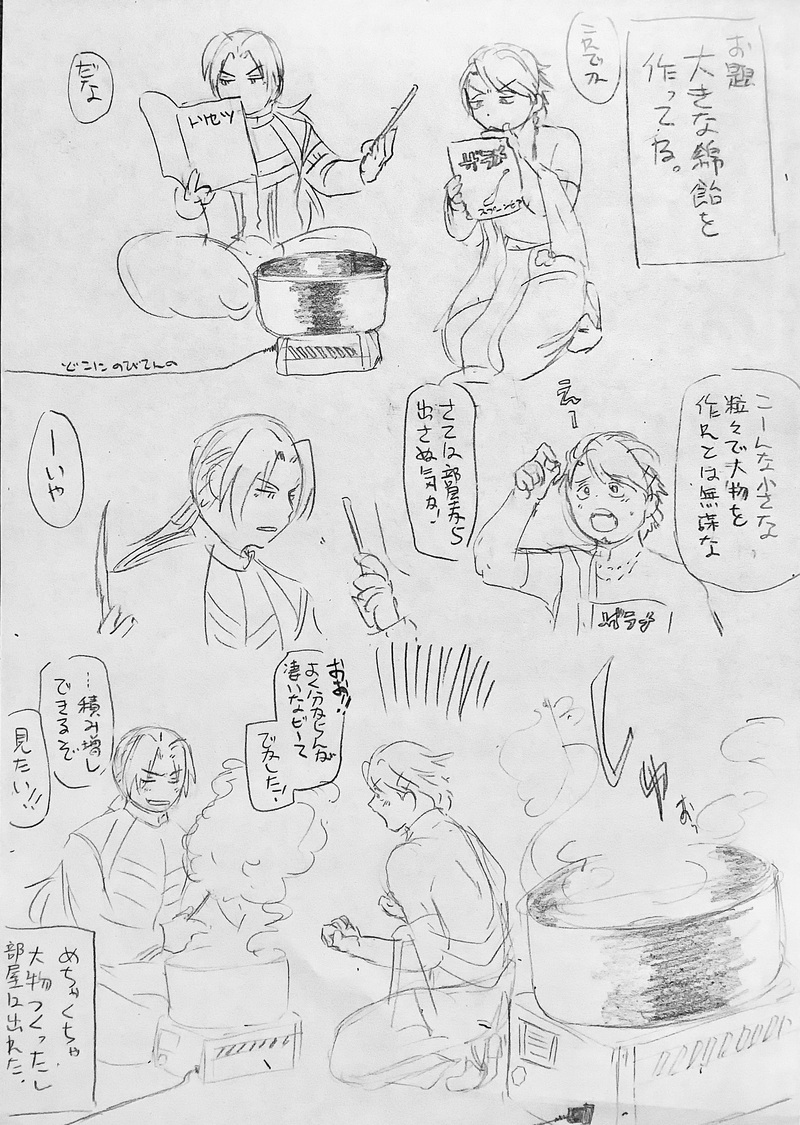 お題
大きな綿飴を
作ってね。
だな
トリセツ
ザラメ
スプーン1杯
どこにのびてんの
こーんな小さな
粒々で大物を
作れとは無謀な
えー
さては部屋から
出さぬ気か!
ーいや
ザラメ
しゅ
おっ
おお!!
よく分からんが
凄いなどーて
できた!
…積み増し
できるぞ
見たい!!
めちゃくちゃ
大物つくったし
部屋は出れた。